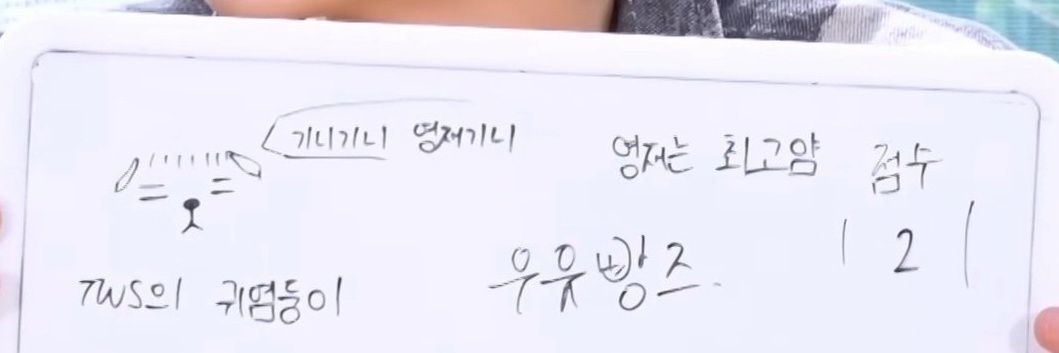 기니기니 영재기니
영재는 최고얌
점수
2
TWS의 귀염둥이
우유빵즈.